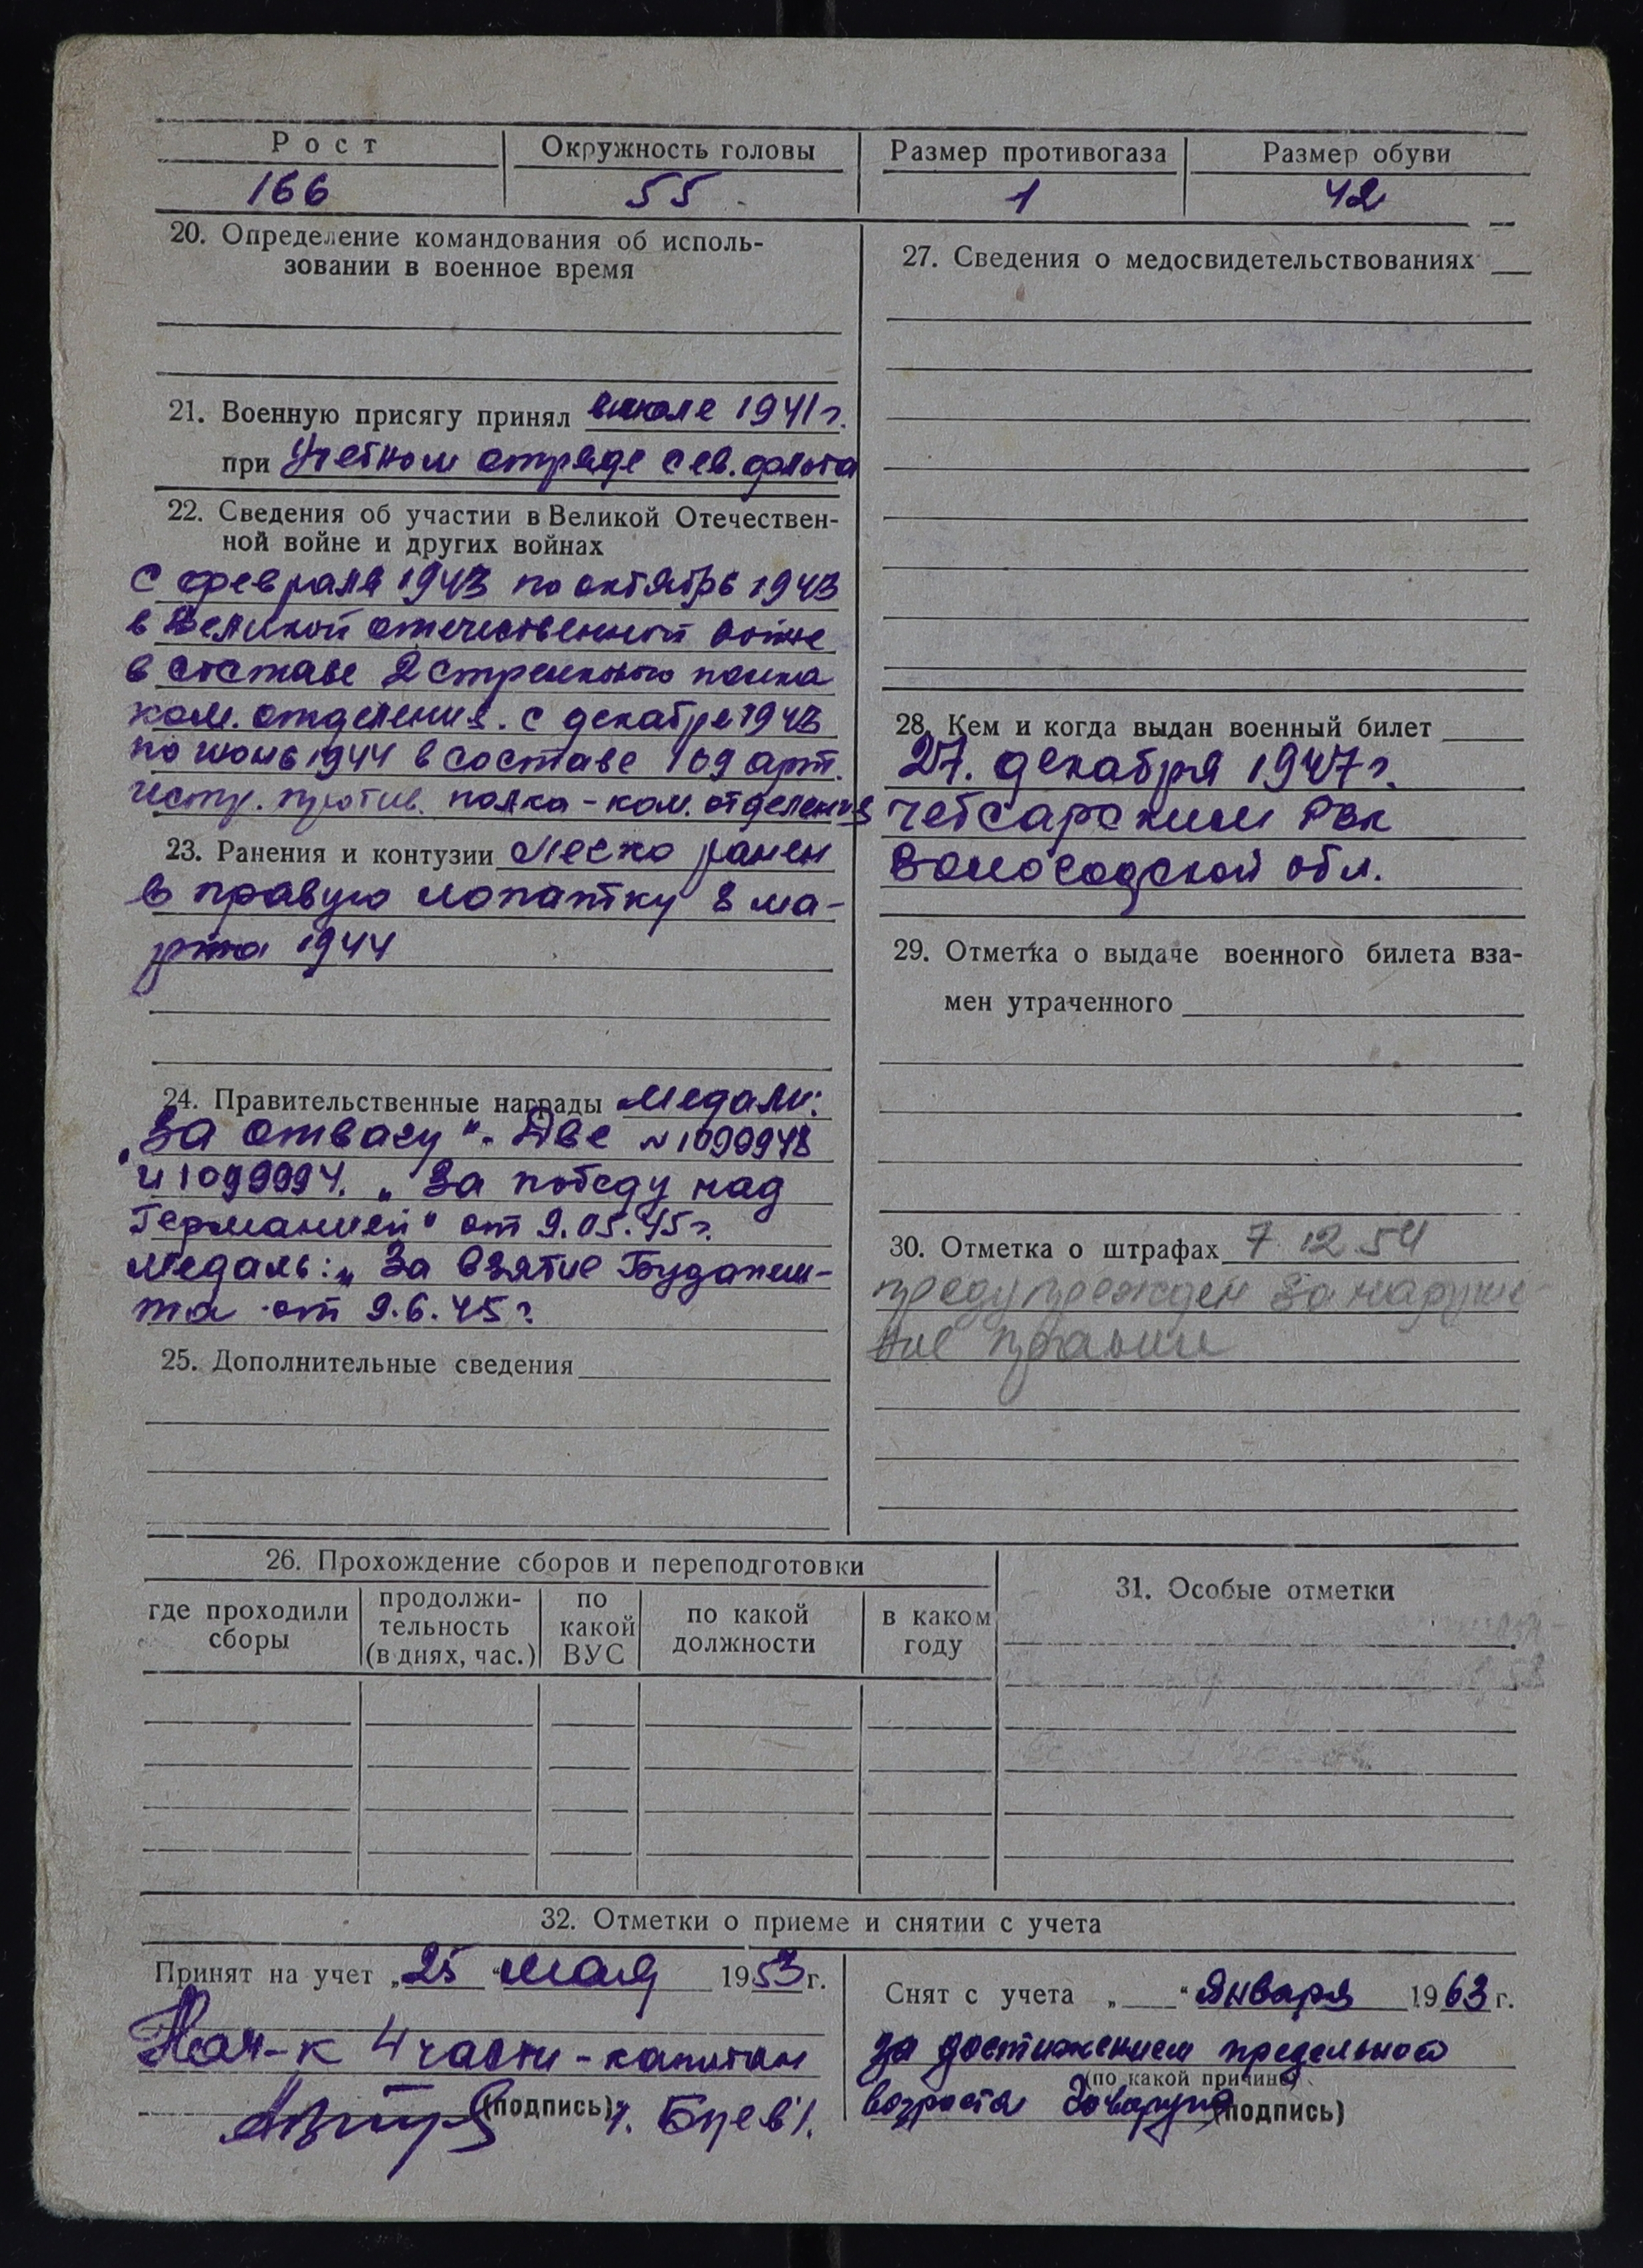 Рост Окружность головы Размер противогаза Размер обуви
166 55 1 42
20. Определение командования об исполь-
зовании в военное время
21. Военную присягу принял в июле 1941 г.
при Учебном отряде Сев. флота
22. Сведения об участии в Великой Отечествен-
ной войне и других войнах
С февраля 1943 по октябрь 1943
в Великой отечественной войне
в составе 2 стрелкового полка
ком. отделения. С декабря 1943
по июнь 1944 в составе 109 арт.
истр. против. полка - ком. отделения
23. Ранения и контузии Легко ранен
в правую лопатку 8 ма-
рта 1944
24. Правительственные награды Медали:
„За отвагу". Две № 1099948
и 1099994. „За победу над
Германией" от 9.05.45 г.
Медаль: „За взятие Будапеш-
та от 9.6.45 г.
25. Дополнительные сведения
27. Сведения о медосвидетельствованиях
28. Кем и когда выдан военный билет
27. декабря 1947 г.
Чебсарским РВК
Вологодской обл.
29. Отметка о выдаче военного билета вза-
мен утраченного
30. Отметка о штрафах 7 12 54
предупрежден за наруше-
ние правил
26. Прохождение сборов и переподготовки
где проходили сборы продолжи-тельность (в днях, час.) по какой ВУС по какой должности в каком году
31. Особые отметки
32. Отметки о приеме и снятии с учета
Принят на учет „25" мая 1953 г.
Нач-к 4 части - капитан
(подпись)
Снят с учета „ " Января 1963 г.
за достижением предельного
(по какой причине)
возраста (подпись)